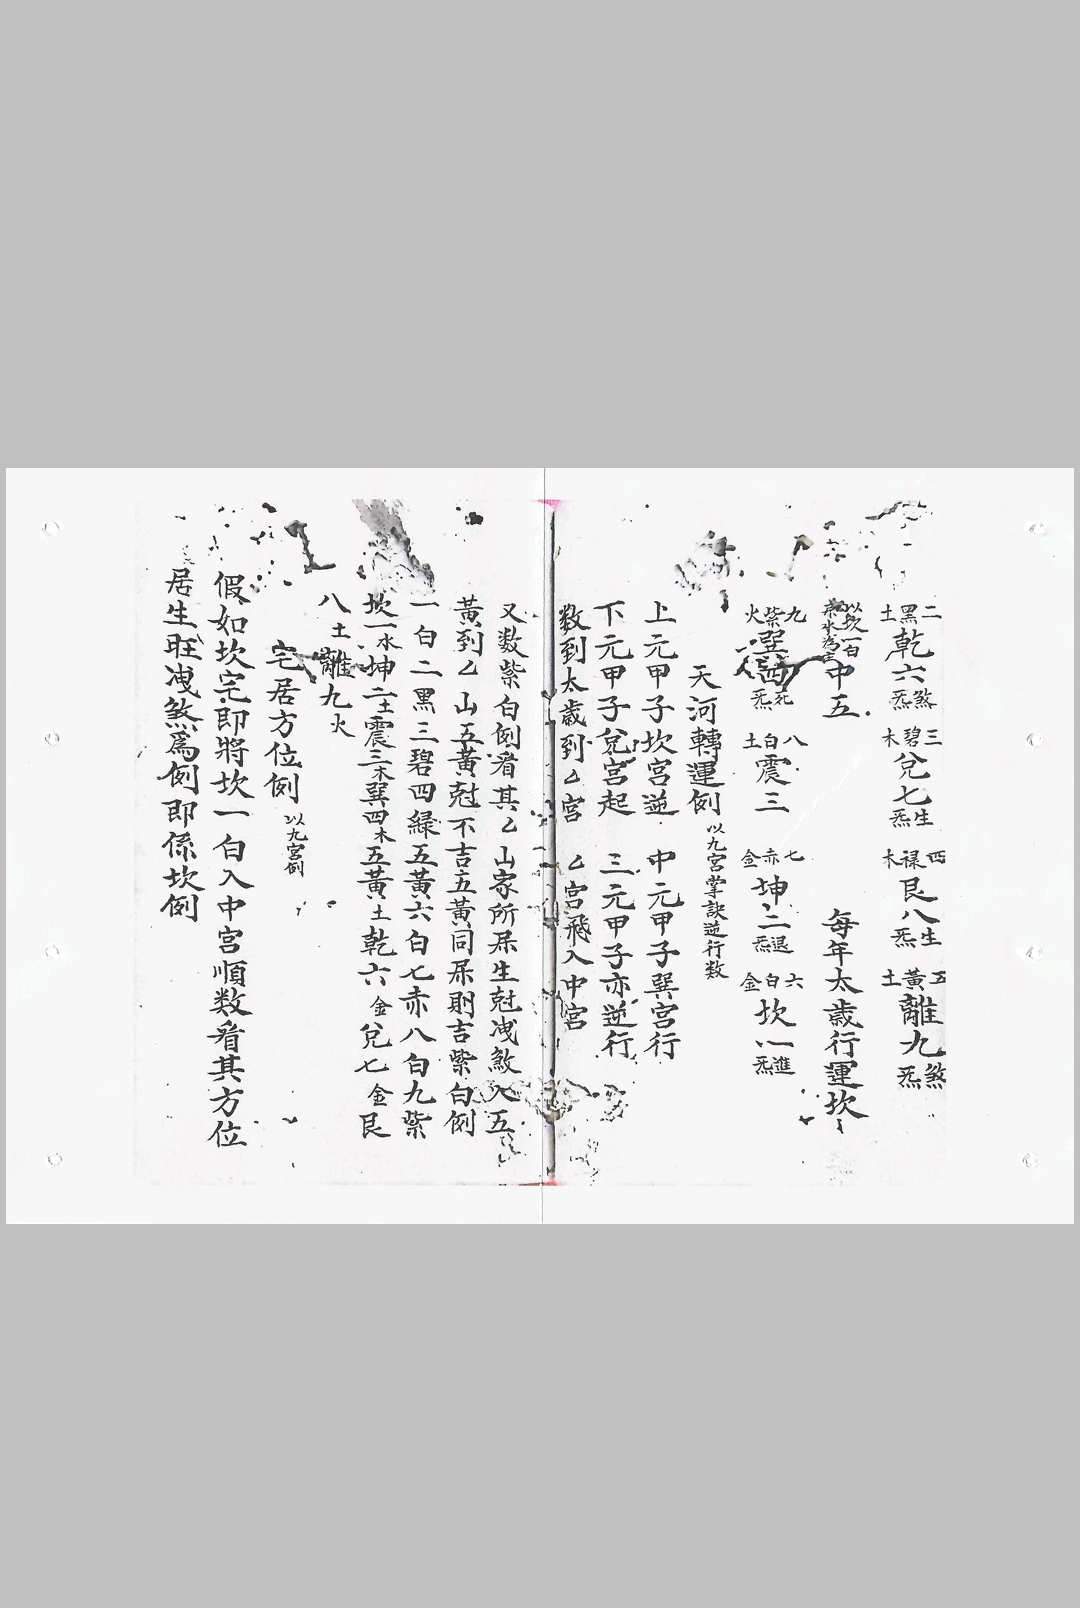 二黑土乾六煞炁三碧木兌七生炁四祿木艮八生炁五黃土離九煞炁
以坎一白中五每年太歲行運坎
九紫火巽四死炁八白土震三七赤金坤二退炁六白金坎一進炁
天河轉運例以九宮掌訣逆行数
上元甲子坎宮逆中元甲子巽宮行
下元甲子兌宮起三元甲子亦逆行
数到太歲到乙宮乙宮飛入中宮
又数紫白例看其乙山家所屎生尅洩煞入五
黃到乙山五黃尅不吉五黃同屎則吉紫白例
一白二黑三碧四綠五黃六白七赤八白九紫
坎一水坤二土震三木巽四木五黃土乾六金兌七金艮
八土離九火
宅居方位例以九宮例
假如坎宅即將坎一白入中宮順数看其方位
居生旺洩煞為例即係坎例